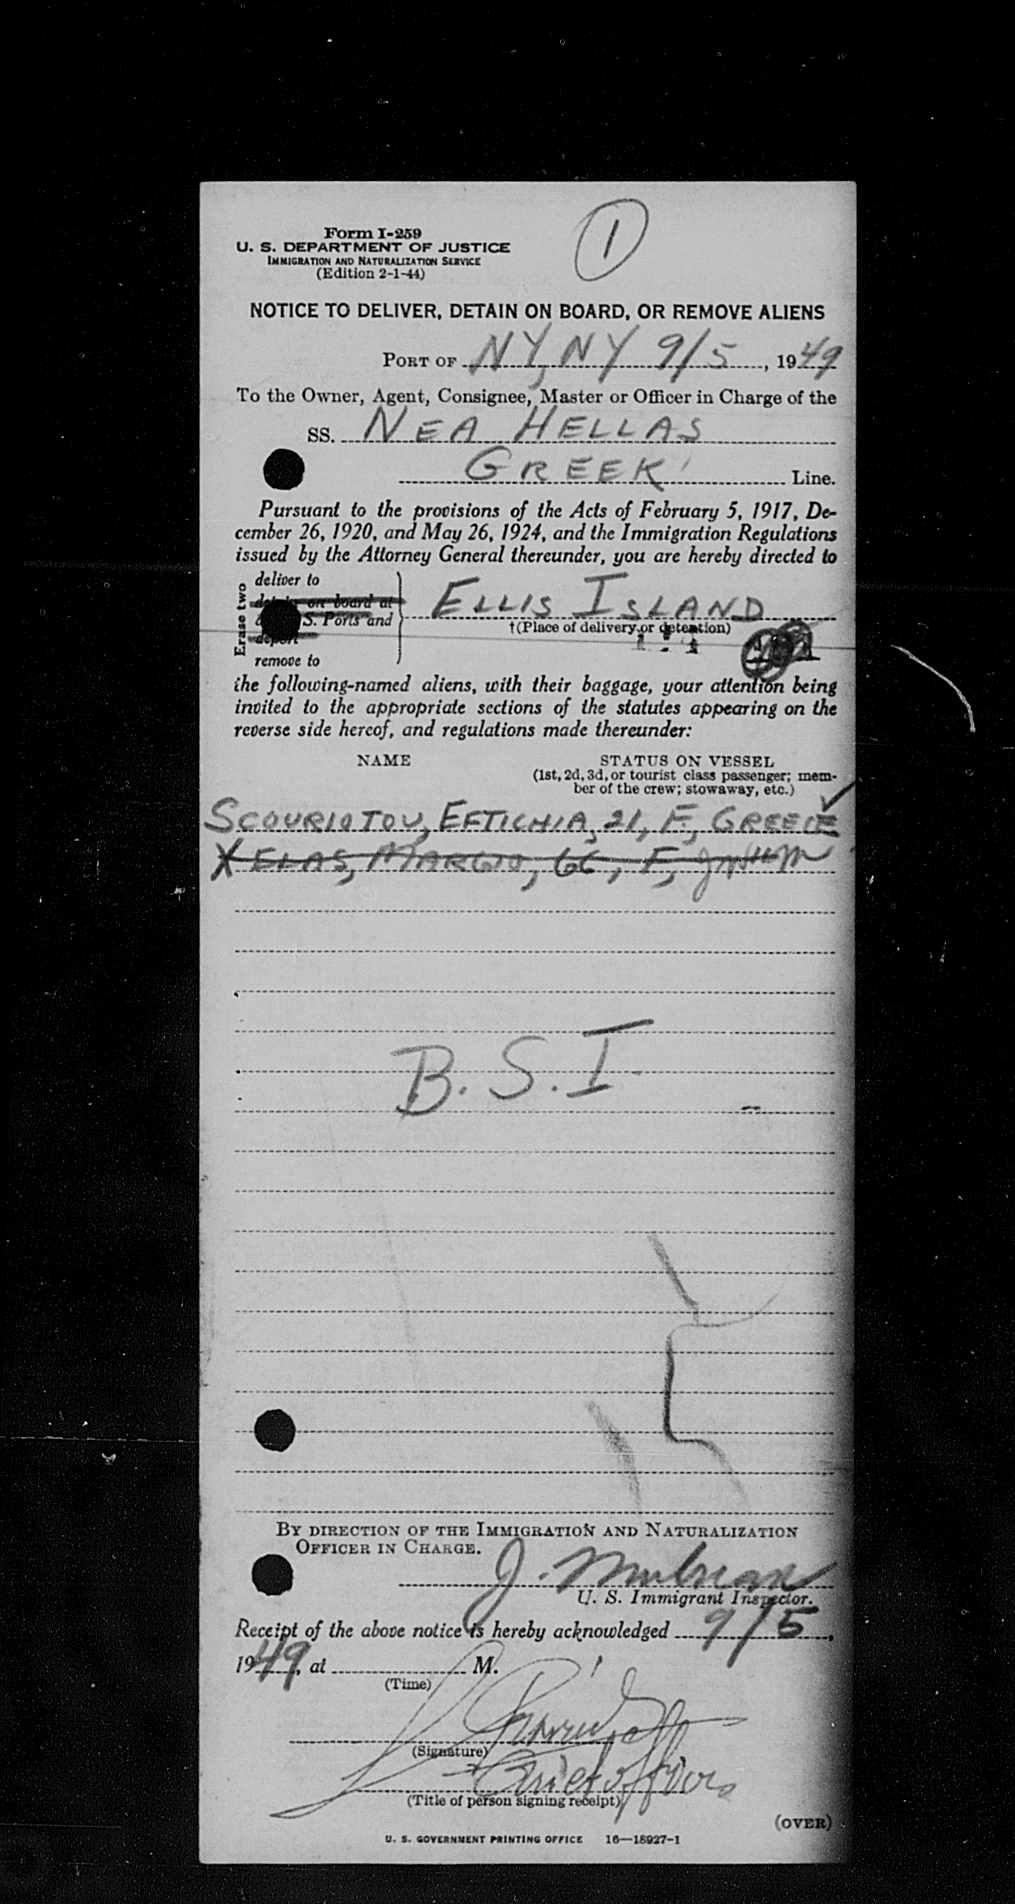 Form I-259
1
U. S. DEPARTMENT OF JUSTICE
IMMIGRATION AND NATURALIZATION SERVICE
(Edition 2-1-44)
NOTICE TO DELIVER, DETAIN ON BOARD, OR REMOVE ALIENS
PORT OF NY, NY 9/5, 1949
To the Owner, Agent, Consignee, Master or Officer in Charge of the
SS. NEA HELLAS
GREEK Line.
Pursuant to the provisions of the Acts of February 5, 1917, De-
cember 26, 1920, and May 26, 1924, and the Immigration Regulations
issued by the Attorney General thereunder, you are hereby directed to
Erase two
deliver to
detain on board at
S. Ports and
deport
remove to
ELLIS ISLAND
†(Place of delivery or detention)
the following-named aliens, with their baggage, your attention being
invited to the appropriate sections of the statutes appearing on the
reverse side hereof, and regulations made thereunder:
NAME STATUS ON VESSEL
(1st, 2d, 3d, or tourist class passenger; mem-
ber of the crew; stowaway, etc.)
SCOURIOTOU, EFTICHIA, 21, F, GREECE
X ELAS, MARGIO, 66, F,
B.S.I.
BY DIRECTION OF THE IMMIGRATION AND NATURALIZATION
OFFICER IN CHARGE.
J.
U. S. Immigrant Inspector.
Receipt of the above notice is hereby acknowledged 9/5,
1949, at M.
(Time)
(Signature)
Chief officer
(Title of person signing receipt)
(OVER)
U. S. GOVERNMENT PRINTING OFFICE 16—18927-1